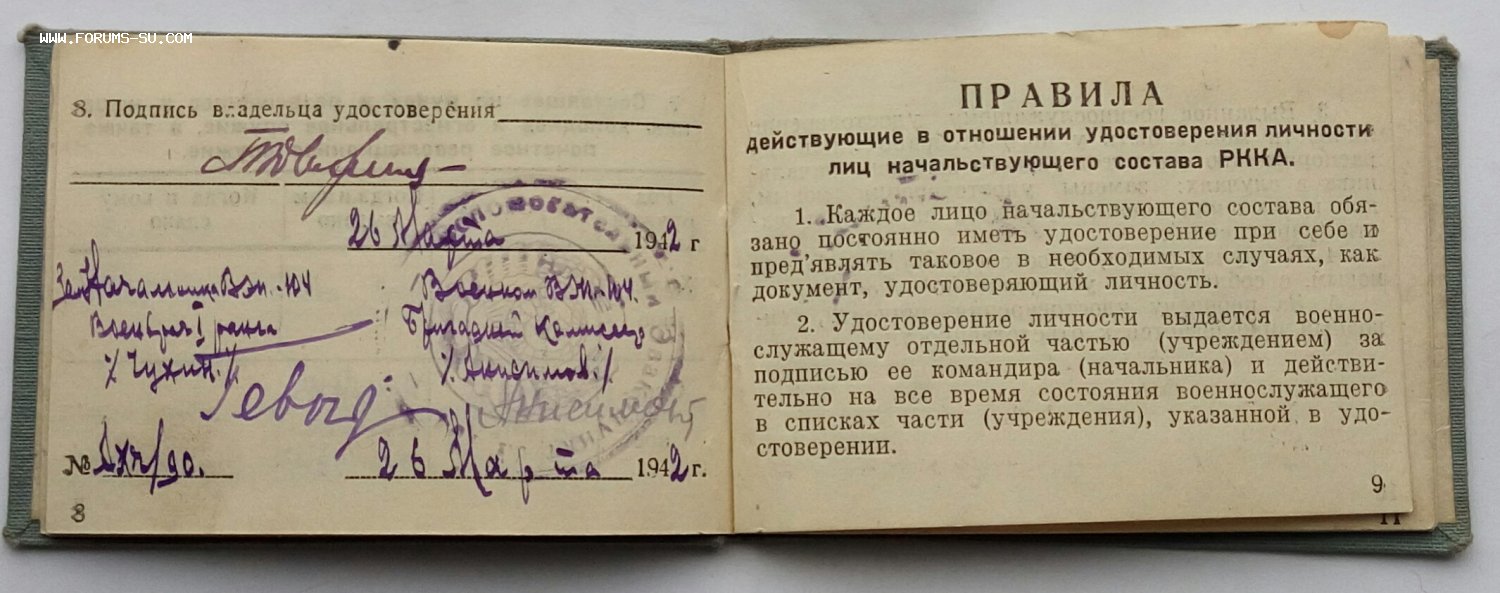 WWW.FORUMS-SU.COM
8. Подпись владельца удостоверения
26 Марта 1942 г
Зам Начальника ВЭП-104 Военком ВЭП-104.
Военврач I ранга Бригадный Комиссар
/Чухин./ /.Анисимов./
Анисимов
№ 26 Марта 1942 г.
8
ПРАВИЛА
действующие в отношении удостоверения личности
лиц начальствующего состава РККА.
1. Каждое лицо начальствующего состава обя-
зано постоянно иметь удостоверение при себе и
пред'являть таковое в необходимых случаях, как
документ, удостоверяющий личность.
2. Удостоверение личности выдается военно-
служащему отдельной частью (учреждением) за
подписью ее командира (начальника) и действи-
тельно на все время состояния военнослужащего
в списках части (учреждения), указанной в удо-
стоверении.
9
11